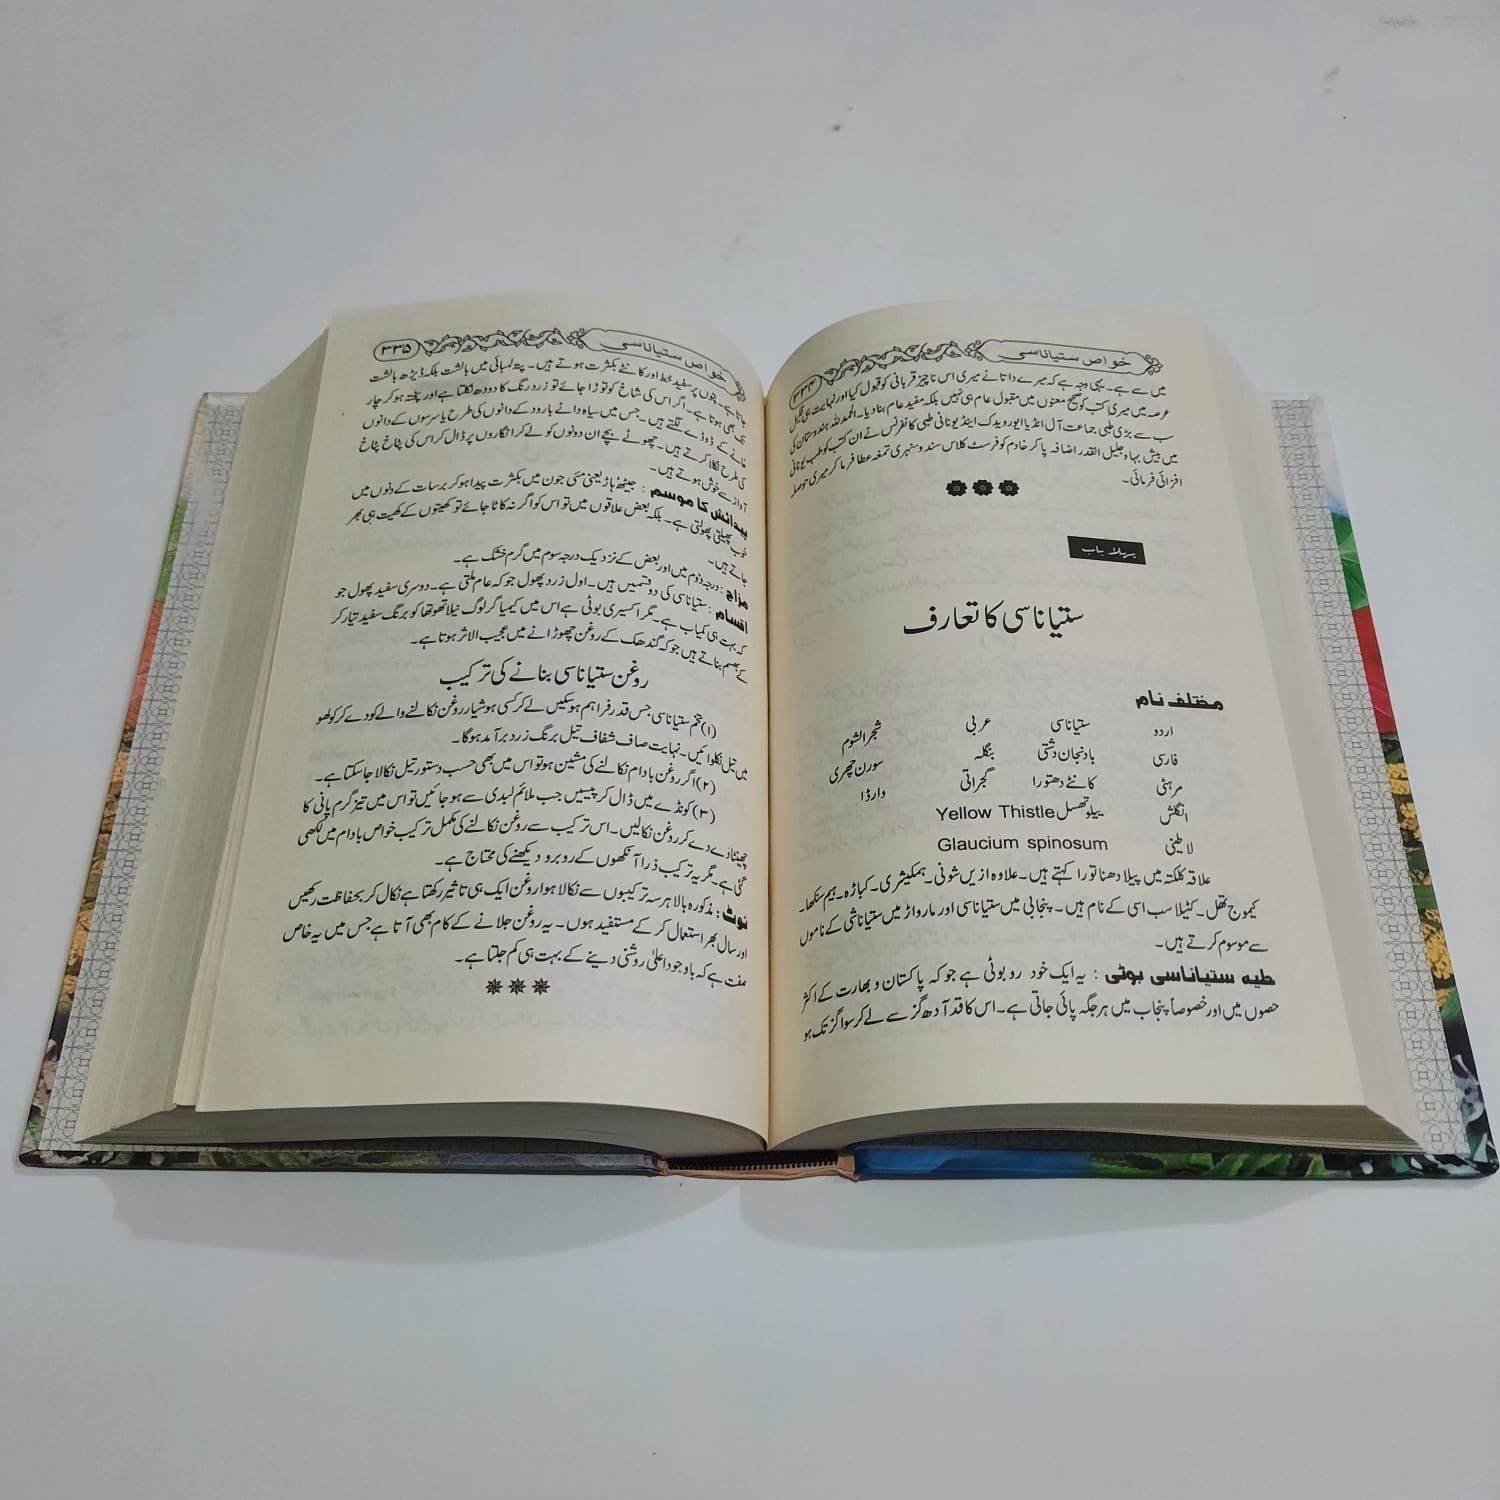 خواص ستیاناسی ۳۳۴
میں سے ہے۔ یہی وجہ ہے کہ میرے داتا نے میری اس ناچیز قربانی کو قبول کیا اور نہایت ہی قلیل
عرصہ میں میری کتب کو صحیح معنوں میں مقبول عام ہی نہیں بلکہ مفید عام بنا دیا۔ الحمدللہ ہندوستان کی
سب سے بڑی طبی جماعت آل انڈیا ایورویدک اینڈ یونانی طبی کانفرنس نے ان کتب کو طب یونانی
میں بیش بہا و جلیل القدر اضافہ پا کر خادم کو فرسٹ کلاس سند و سنہری تمغہ عطا فرما کر میری حوصلہ
افزائی فرمائی۔
پہلا باب
ستیاناسی کا تعارف
مختلف نام
اردو ستیاناسی عربی شجر الشوم
فارسی بادنجان دشتی بنگلہ سورن چھری
مرہٹی کانٹے دھتورا گجراتی وارڈا
انگلش ییلو تھسل Yellow Thistle
لاطینی Glaucium spinosum
علاقہ کلکتہ میں پیلا دھناتورا کہتے ہیں۔ علاوہ ازیں شونی۔ ہمکیشری۔ کباڑہ۔ ہیم سنکھا۔
کیموج تھل۔ کٹیلا سب اسی کے نام ہیں۔ پنجابی میں ستیاناسی اور مارواڑ میں ستیاناشی کے ناموں
سے موسوم کرتے ہیں۔
حلیہ ستیاناسی بوٹی : یہ ایک خود رو بوٹی ہے جو کہ پاکستان و بھارت کے اکثر
حصوں میں اور خصوصاً پنجاب میں ہر جگہ پائی جاتی ہے۔ اس کا قد آدھ گز سے لے کر سوا گز تک ہو
خواص ستیاناسی ۳۳۵
جاتا ہے۔ پتوں پر سفید خط اور کانٹے بکثرت ہوتے ہیں۔ پتہ لمبائی میں بالشت بلکہ ڈیڑھ بالشت
تک بھی ہوتا ہے۔ اگر اس کی شاخ کو توڑا جائے تو زرد رنگ کا دودھ نکلتا ہے اور پختہ ہو کر چار
خانے کے ڈوڈے لگتے ہیں۔ جس میں سیاہ دانے بارود کے دانوں کی طرح یا سرسوں کے دانوں
کی طرح نکلا کرتے ہیں۔ چھوٹے بچے ان دونوں کو لے کر انگاروں پر ڈال کر اس کی پٹاخ پٹاخ
آواز سے خوش ہوتے ہیں۔
پیدائش کا موسم : جیٹھ ہاڑ یعنی مئی جون میں بکثرت پیدا ہو کر برسات کے دنوں میں
خوب پھیلتی پھولتی ہے۔ بلکہ بعض علاقوں میں تو اس کو اگر نہ کاٹا جائے تو کھیتوں کے کھیت ہی بھر
جاتے ہیں۔
مزاج : درجہ دوم میں اور بعض کے نزدیک درجہ سوم میں گرم خشک ہے۔
اقسام : ستیاناسی کی دو قسمیں ہیں۔ اول زرد پھول جو کہ عام ملتی ہے۔ دوسری سفید پھول جو
کہ بہت ہی کمیاب ہے۔ مگر اکسیری بوٹی ہے اس میں کیمیا گر لوگ نیلا تھوتھا کو برنگ سفید تیار کر
کے بھسم بناتے ہیں جو کہ گندھک کے روغن چھوڑانے میں عجیب الاثر ہوتا ہے۔
روغن ستیاناسی بنانے کی ترکیب
(۱) تخم ستیاناسی جس قدر فراہم ہو سکیں لے کر کسی ہوشیار روغن نکالنے والے کو دے کر کولھو
میں تیل نکلوائیں۔ نہایت صاف شفاف تیل برنگ زرد برآمد ہو گا۔
(۲) اگر روغن بادام نکالنے کی مشین ہو تو اس میں بھی حسب دستور تیل نکالا جا سکتا ہے۔
(۳) کونڈے میں ڈال کر پیسیں جب ملائم لبدی سے ہو جائیں تو اس میں تیز گرم پانی کا
چھینٹا دے دے کر روغن نکالیں۔ اس ترکیب سے روغن نکالنے کی مکمل ترکیب خواص بادام میں لکھی
گئی ہے۔ مگر یہ ترکیب ذرا آنکھوں کے روبرو دیکھنے کی محتاج ہے۔
نوٹ : مذکورہ بالا ہر سہ ترکیبوں سے نکالا ہوا روغن ایک ہی تاثیر رکھتا ہے نکال کر بحفاظت رکھیں
اور سال بھر استعمال کر کے مستفید ہوں۔ یہ روغن جلانے کے کام بھی آتا ہے جس میں یہ خاص
صفت ہے کہ باوجود اعلیٰ روشنی دینے کے بہت ہی کم جلتا ہے۔